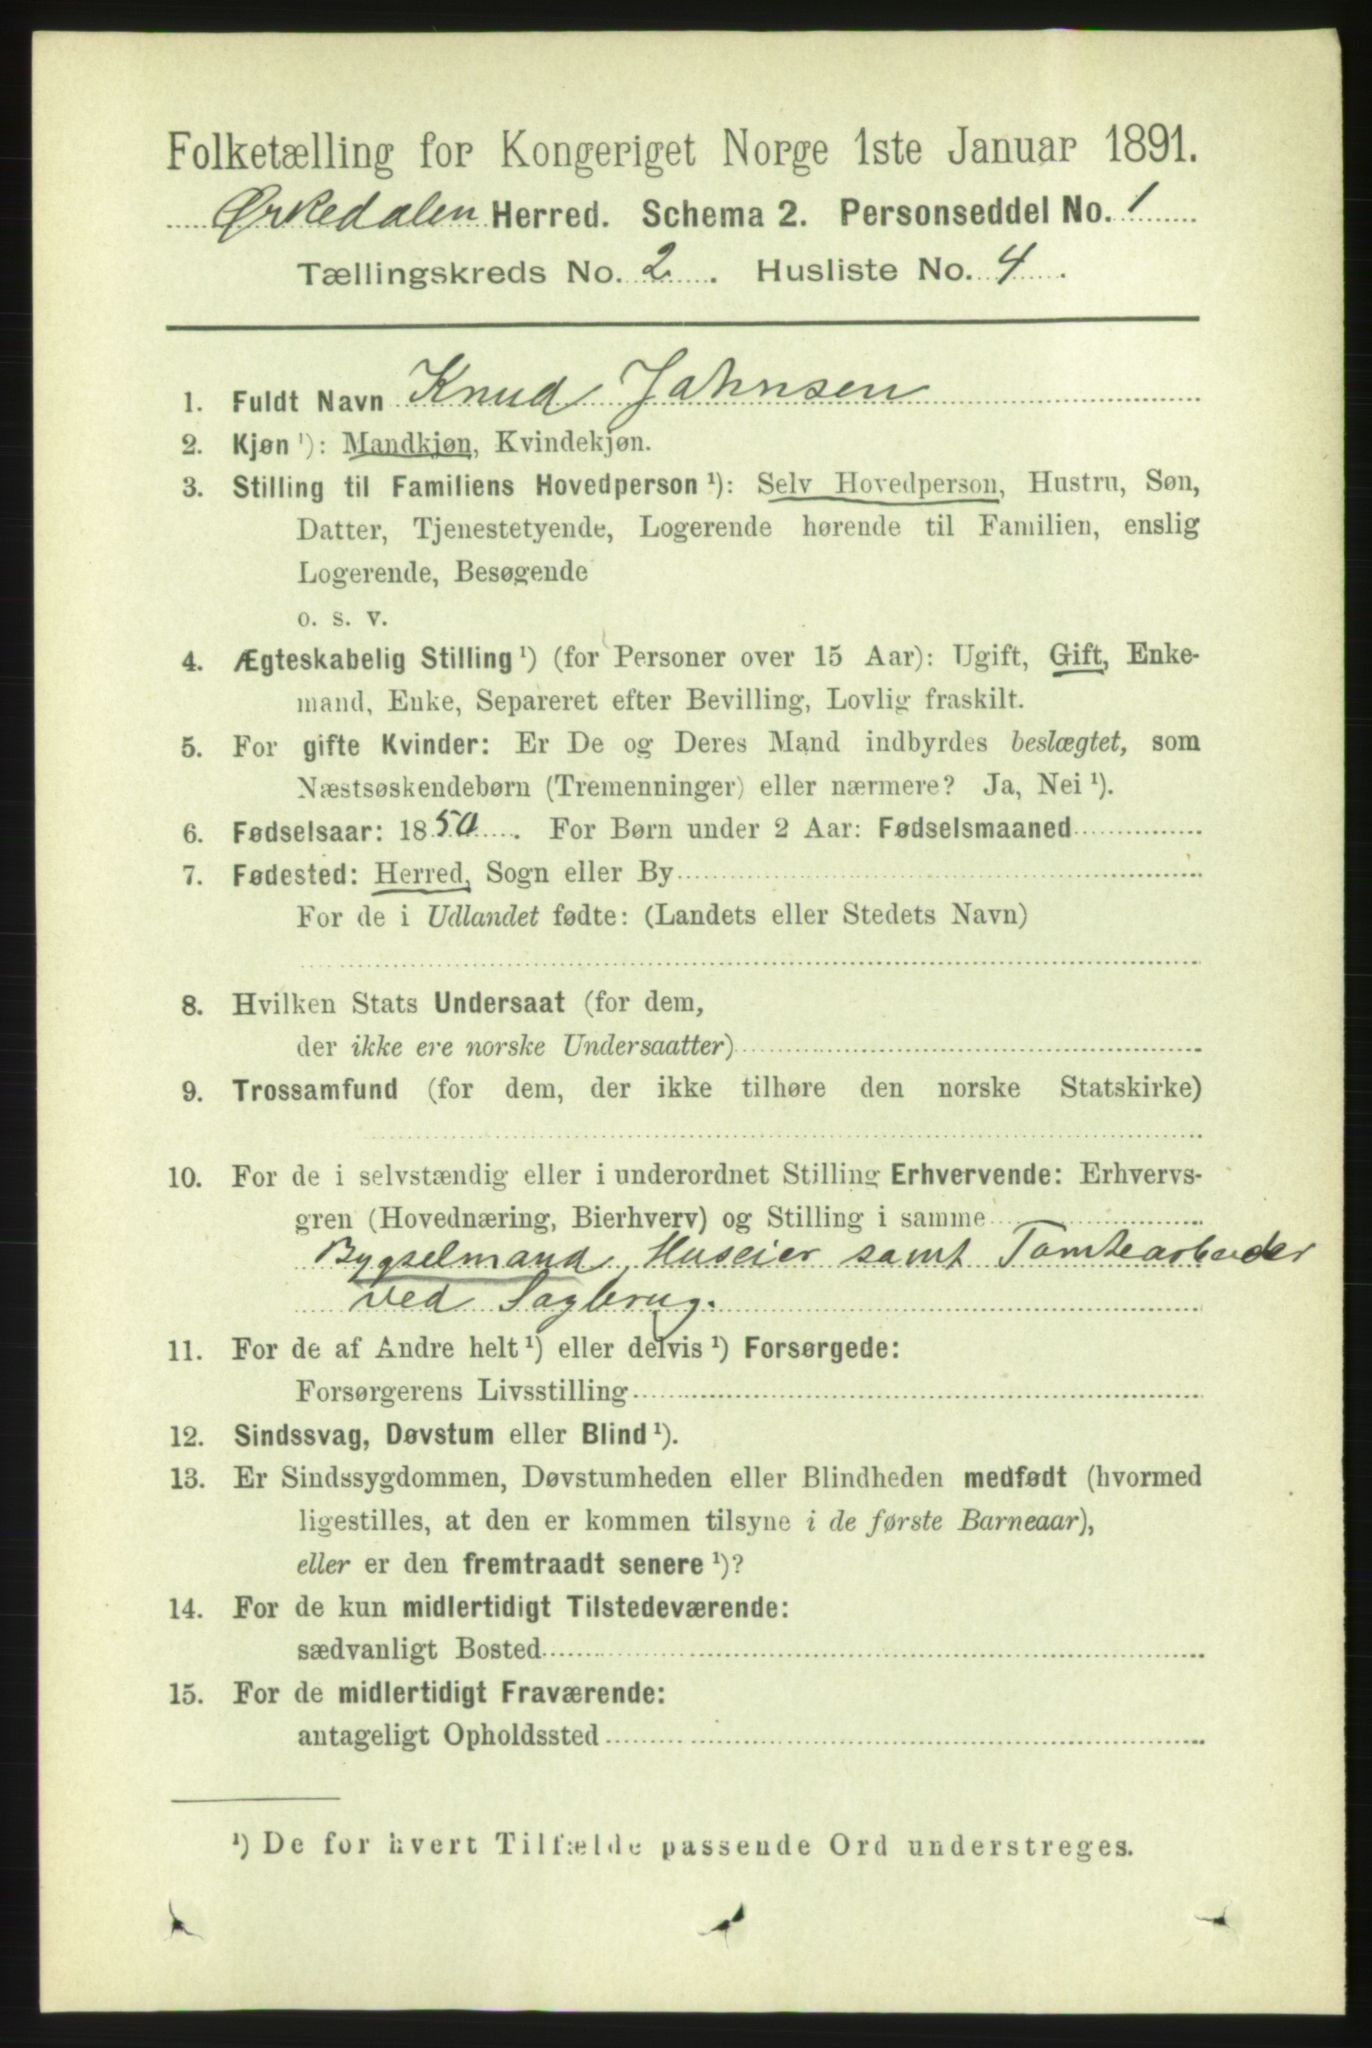 Folketælling for Kongeriget Norge 1ste Januar 1891.
Ørkedalen Herred. Schema 2. Personseddel No. 1
Tællingskreds No. 2. Husliste No. 4.
1. Fuldt Navn Knud Jahnsen
2. Kjøn ¹): Mandkjøn, Kvindekjøn.
3. Stilling til Familiens Hovedperson ¹): Selv Hovedperson, Hustru, Søn,
Datter, Tjenestetyende, Logerende hørende til Familien, enslig
Logerende, Besøgende
o. s. v.
4. Ægteskabelig Stilling ¹) (for Personer over 15 Aar): Ugift, Gift, Enke-
mand, Enke, Separeret efter Bevilling, Lovlig fraskilt.
5. For gifte Kvinder: Er De og Deres Mand indbyrdes beslægtet, som
Næstsøskendebørn (Tremenninger) eller nærmere? Ja, Nei ¹).
6. Fødselsaar: 1850. For Børn under 2 Aar: Fødselsmaaned
7. Fødested: Herred, Sogn eller By
For de i Udlandet fødte: (Landets eller Stedets Navn)
8. Hvilken Stats Undersaat (for dem,
der ikke ere norske Undersaatter)
9. Trossamfund (for dem, der ikke tilhøre den norske Statskirke)
10. For de i selvstændig eller i underordnet Stilling Erhvervende: Erhvervs-
gren (Hovednæring, Bierhverv) og Stilling i samme
Bygselmand, Huseier samt Tomtearbeider
ved Sagbrug.
11. For de af Andre helt ¹) eller delvis ¹) Forsørgede:
Forsørgerens Livsstilling
12. Sindssvag, Døvstum eller Blind ¹).
13. Er Sindssygdommen, Døvstumheden eller Blindheden medfødt (hvormed
ligestilles, at den er kommen tilsyne i de første Barneaar),
eller er den fremtraadt senere ¹)?
14. For de kun midlertidigt Tilstedeværende:
sædvanligt Bosted
15. For de midlertidigt Fraværende:
antageligt Opholdssted
¹) De for hvert Tilfælde passende Ord understreges.